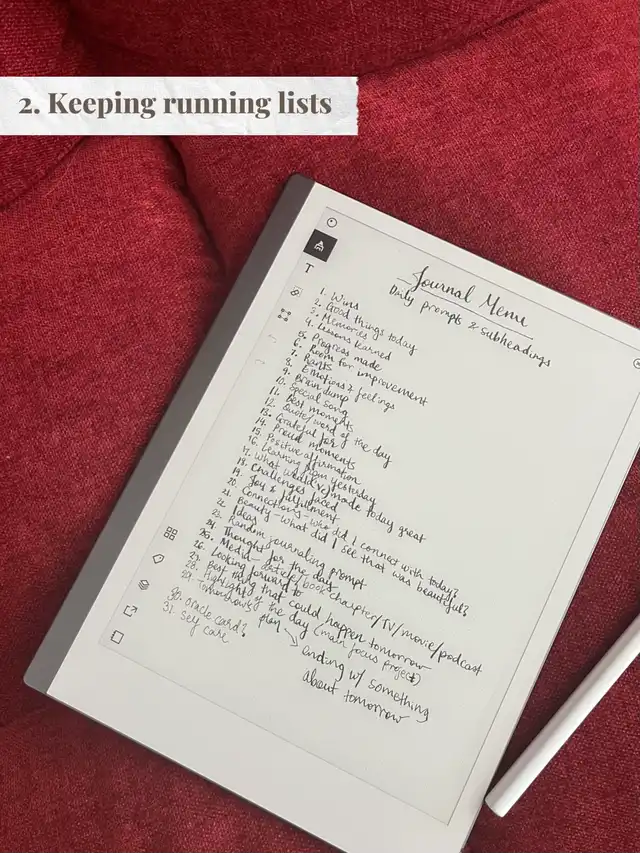 2. Keeping running lists
T
Journal Menu
Daily prompts & subheadings
1. Wins
2. Good things today
3. Memories
4. Lessons learned
5. Progress made
6. Room for improvement
7. Rants
8. Emotions & feelings
9. Brain dump
10. Special song
11. Best moments
12. Quote/word of the day
13. Grateful for
14. Proud moments
15. Positive affirmation
16. Learning from yesterday
17. What would've made today great
18. Challenges faced
19. Joy & fulfillment
20. Connections - who did I connect with today?
21. Beauty - what did I see that was beautiful?
22. Ideas
23. Random journaling prompt
24. Thought for the day
25. Media - article/book chapter/TV/movie/podcast
26. Looking forward to
27. Best thing that could happen tomorrow
28. Highlight of the day (main focus project)
29. Tomorrow's plan
30. Oracle card?
31. Self care
ending w/ something
about tomorrow